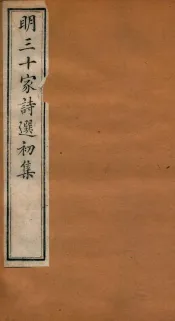 明三十家詩選初集